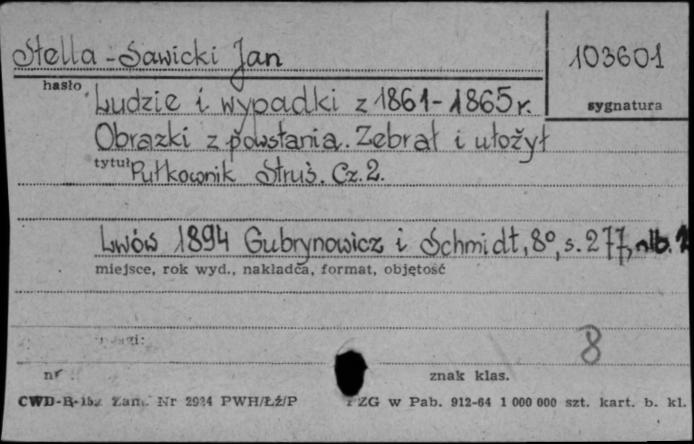 Stella-Sawicki Jan
103601
hasło
sygnatura
Ludzie i wypadki z 1861-1865 r.
Obrazki z powstania. Zebrał i ułożył
tytuł
Pułkownik Struś. Cz. 2.
Lwów 1894 Gubrynowicz i Schmidt, 8°, s. 277, nlb.
miejsce, rok wyd., nakładca, format, objętość
8
nr
znak klas.
CWD-B-15. Zam. Nr 2934 PWH/ŁŹ/P
ZG w Pab. 912-64 1 000 000 szt. kart. b. kl.